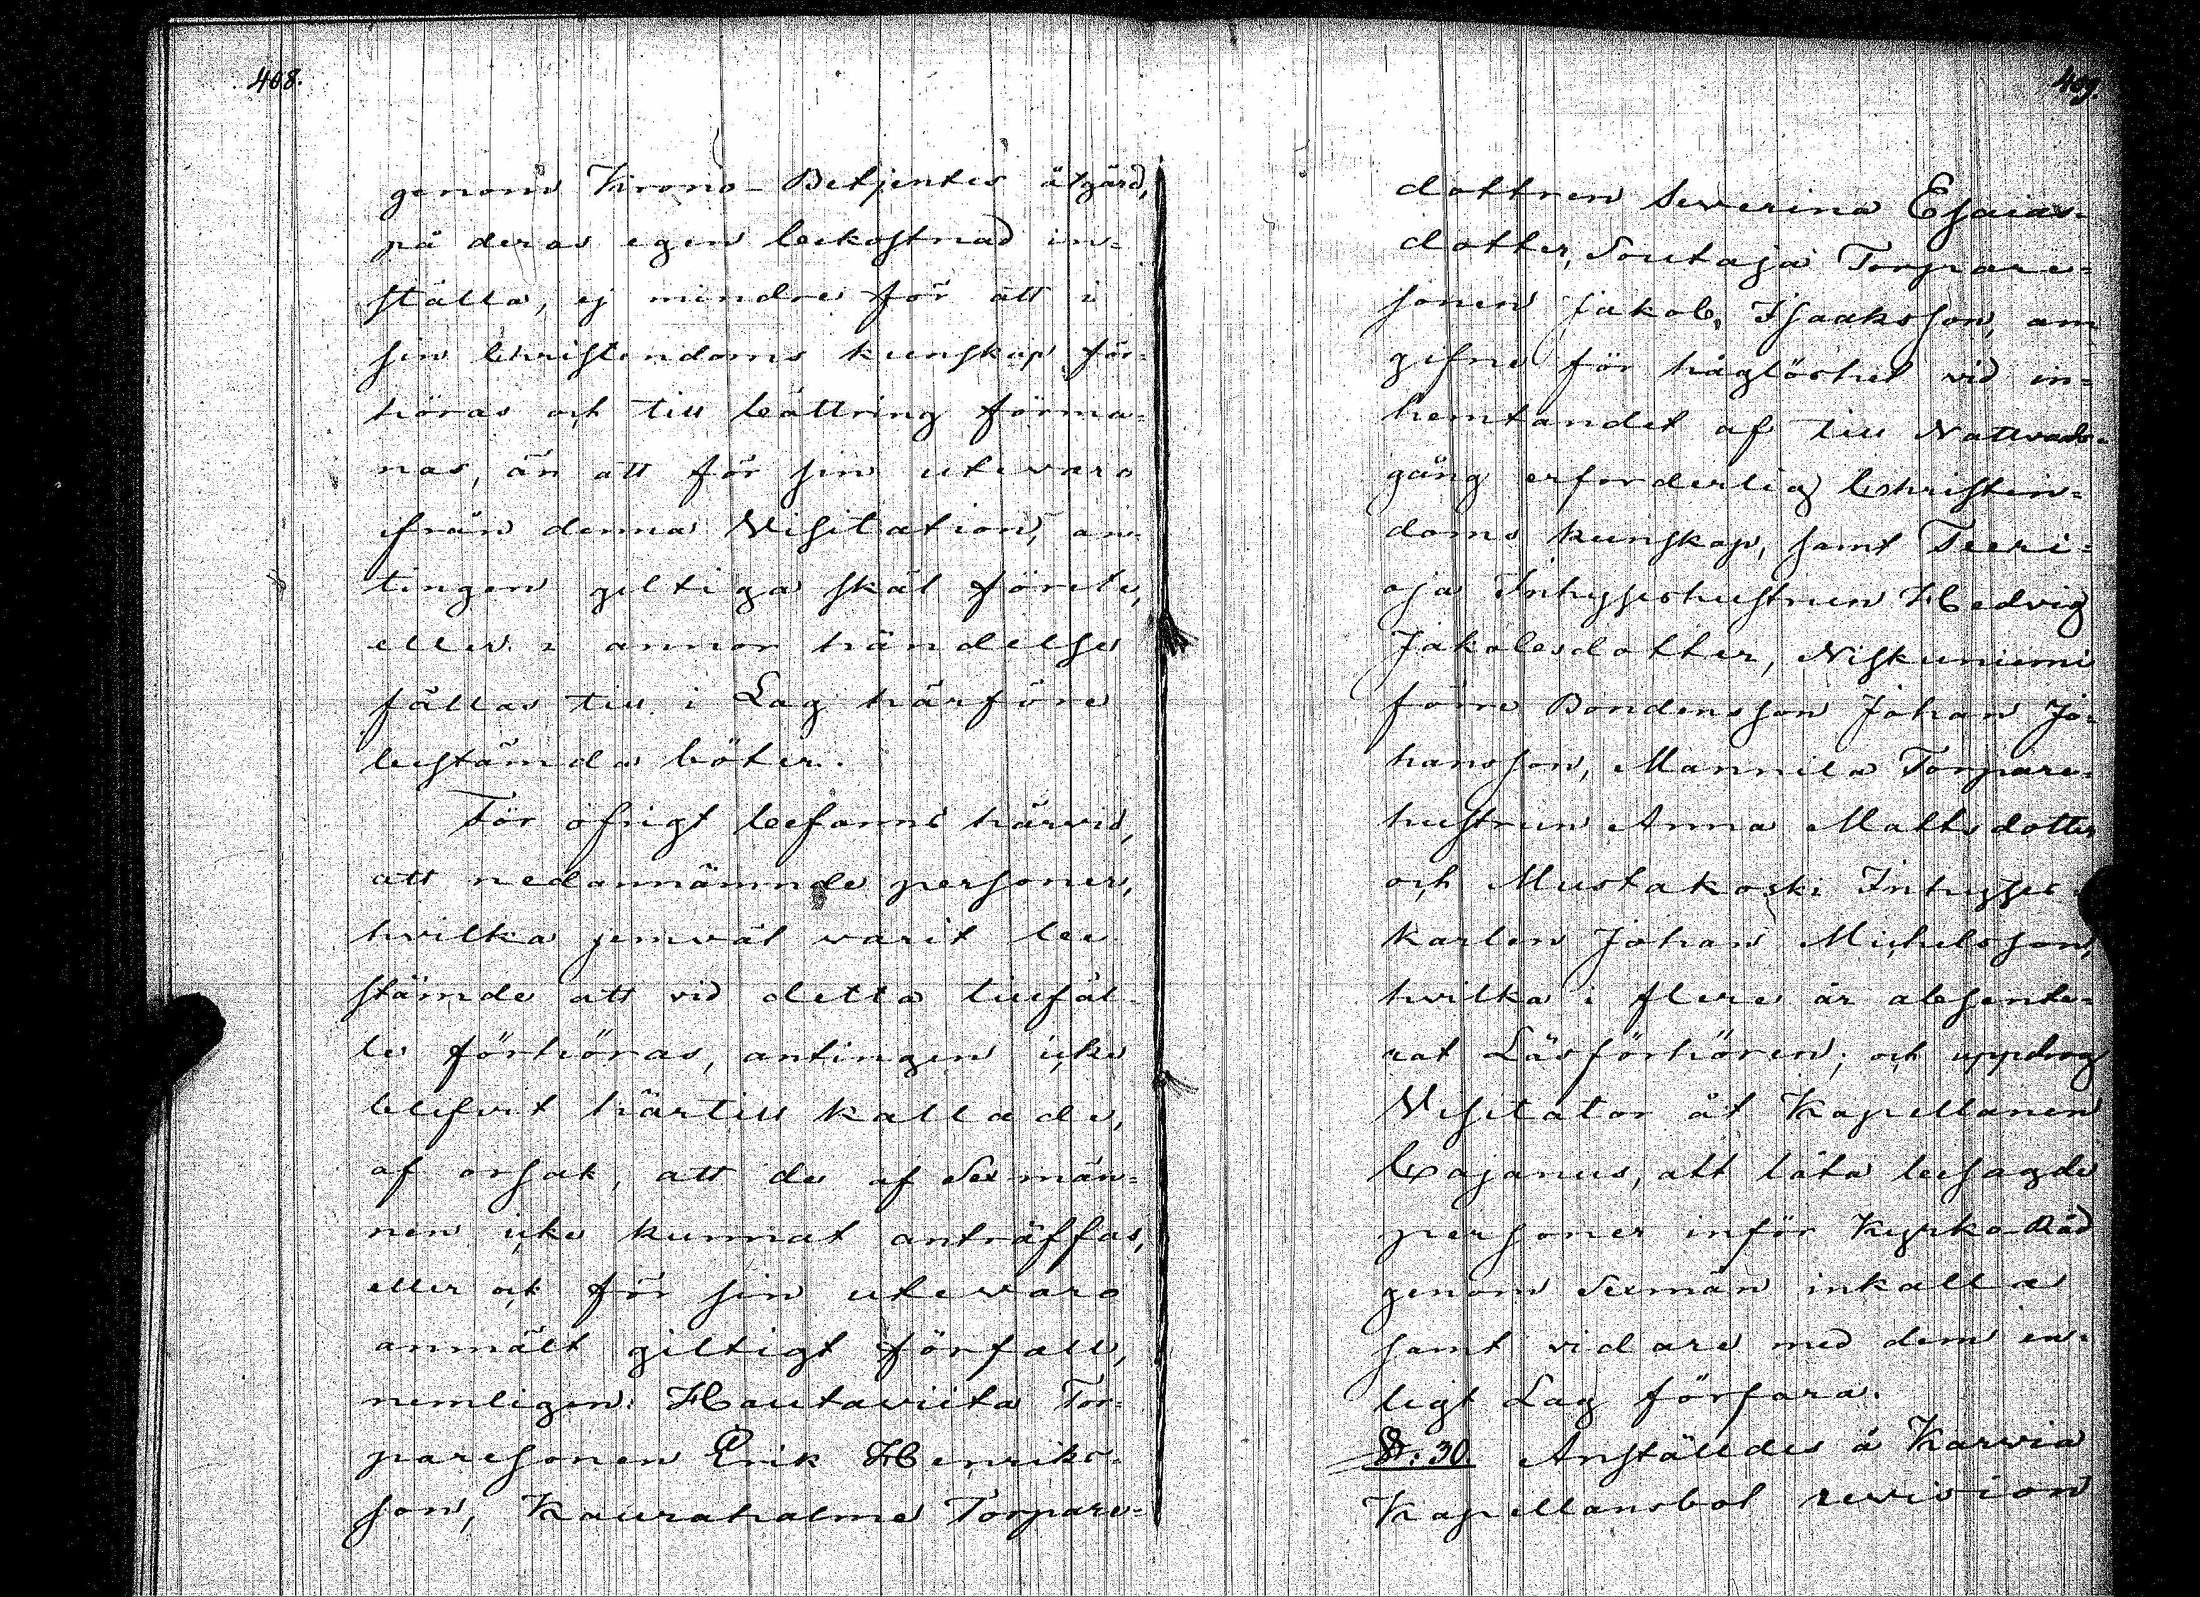 408.
genom Krono-Betjentes åtgärd,
på deras egen bekostnad in=
ställa, ej mindre för att i
sin Christendoms kunskap för=
höras och till bättring förma=
nas, än att för sin utevaro
ifrån denna Visitation, an=
tingen giltiga skäl förete,
eller i annor händelse
fällas till i Lag härföre
bestämda böter.
För öfrigt befanns härvid,
att nedannämnde personer,
hvilka jemväl varit be=
stämde att vid detta tillfäl=
le förhöras, antingen icke
blifvit härtill kallade,
af orsak, att de af Sexmän=
nen icke kunnat anträffas,
eller ock för sin utevaro
anmält giltigt förfall,
nemligen: Hautaviita Tor=
paresonen Erik Henriks=
son, Kauraholma Torpare=
409.
dottren Severina Esaias=
dotter, Soutaja Torpare=
sonen Jakob Isaaksson, an
gifne för håglöshet vid in=
hemtandet af till Nattvards=
gång erforderlig Christen=
doms kunskap, samt Teeri=
oja Inhyseshustrun Hedvig
Jakobsdotter, Niskuniemi
förre Bondensson Johan Jo=
hansson, Mannila Torpare=
hustrun Anna Mattsdotter
och Mustakoski Inhyses=
karlen Johan Michelsson,
hvilka i flere år absente=
rat Läsförhören; och uppdrog
Visitator åt Kapellanen
Cajanus, att låta besagde
personer inför Kyrko-Råd
genom Sexmän inkalla
samt vidare med dem en=
ligt Lag förfara.
§. 30. Anställdes å Karvia
Kapellansbol revision